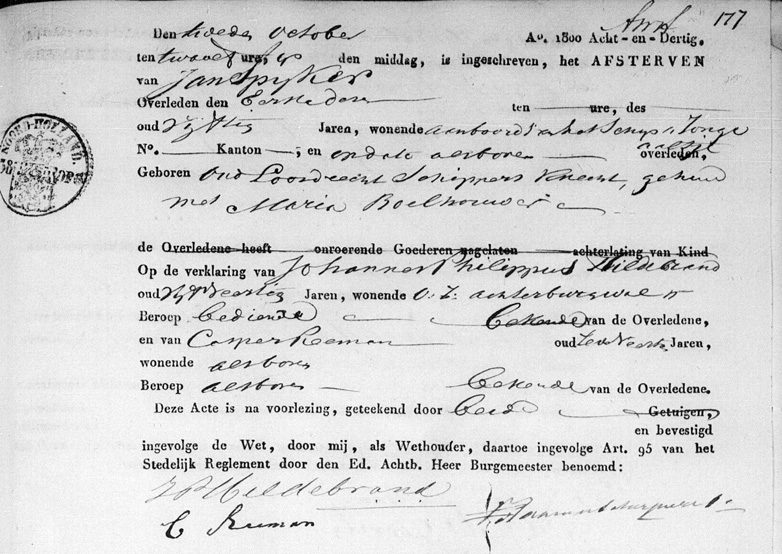 177
Den tweede October A°. 1800 Acht-en-Dertig,
ten twaalf ure, den middag, is ingeschreven, het AFSTERVEN
van Jan Spyker
Overleden den Eersten dezer ten ure, des
oud Jaren, wonende aan boord van het Schip Jonge
N°. Kanton ; en overleden,
Geboren Oud Loosdrecht Schippers Knecht, gehuwd
met Maria Roelhouwer
de Overledene heeft onroerende Goederen nagelaten achterlating van Kind
Op de verklaring van Johannes Philippus Hildebrand
oud Jaren, wonende O. Z. achterburgwal
Beroep bediende Bekende van de Overledene,
en van Casper Reeman oud Jaren,
wonende alsboven
Beroep alsboven Bekende van de Overledene.
Deze Acte is na voorlezing, geteekend door beide Getuigen,
en bevestigd
ingevolge de Wet, door mij, als Wethouder, daartoe ingevolge Art. 95 van het
Stedelijk Reglement door den Ed. Achtb. Heer Burgemeester benoemd:
J P Hildebrand
C Reeman
NOORD-HOLLAND